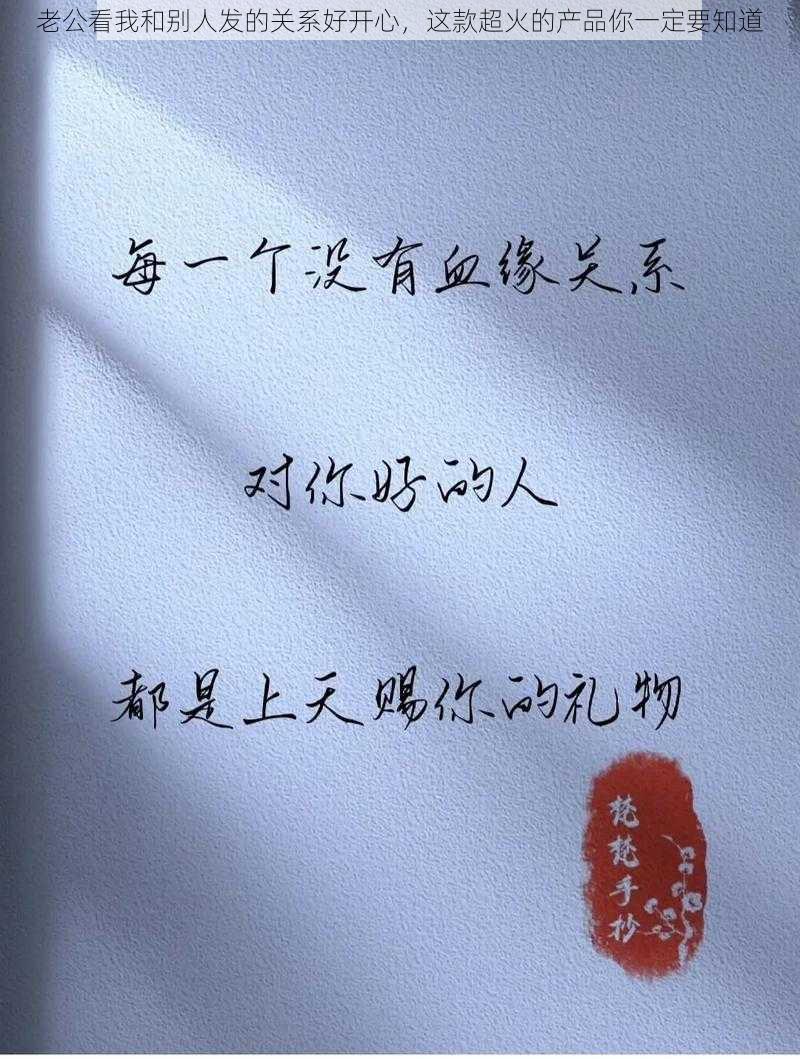 老公看我和别人发的关系好开心，这款超火的产品你一定要知道
每一个没有血缘关系
对你好的人
都是上天赐你的礼物
梵梵手抄